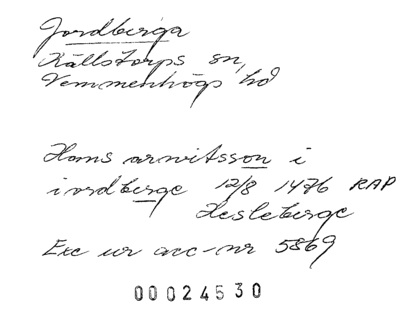 Jordberga
Källstorps sn,
Vemmenhögs hd
Hans arwitsson i
iordberge 12/8 1476 RAP
Hesleberge
Exc ur acc-nr 5869
00024530